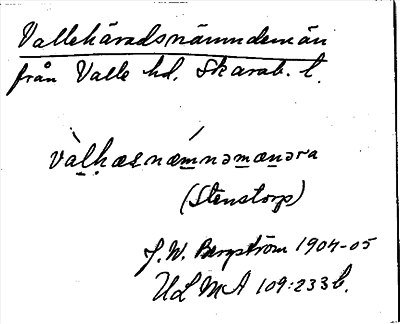 Vallehäradsnämndemän
från Valle hd. Skarab. l.
valhæsnæmnəmænəra
(Stenstorp)
J. W. Bergström 1904-05
ULMA 109:233 b.